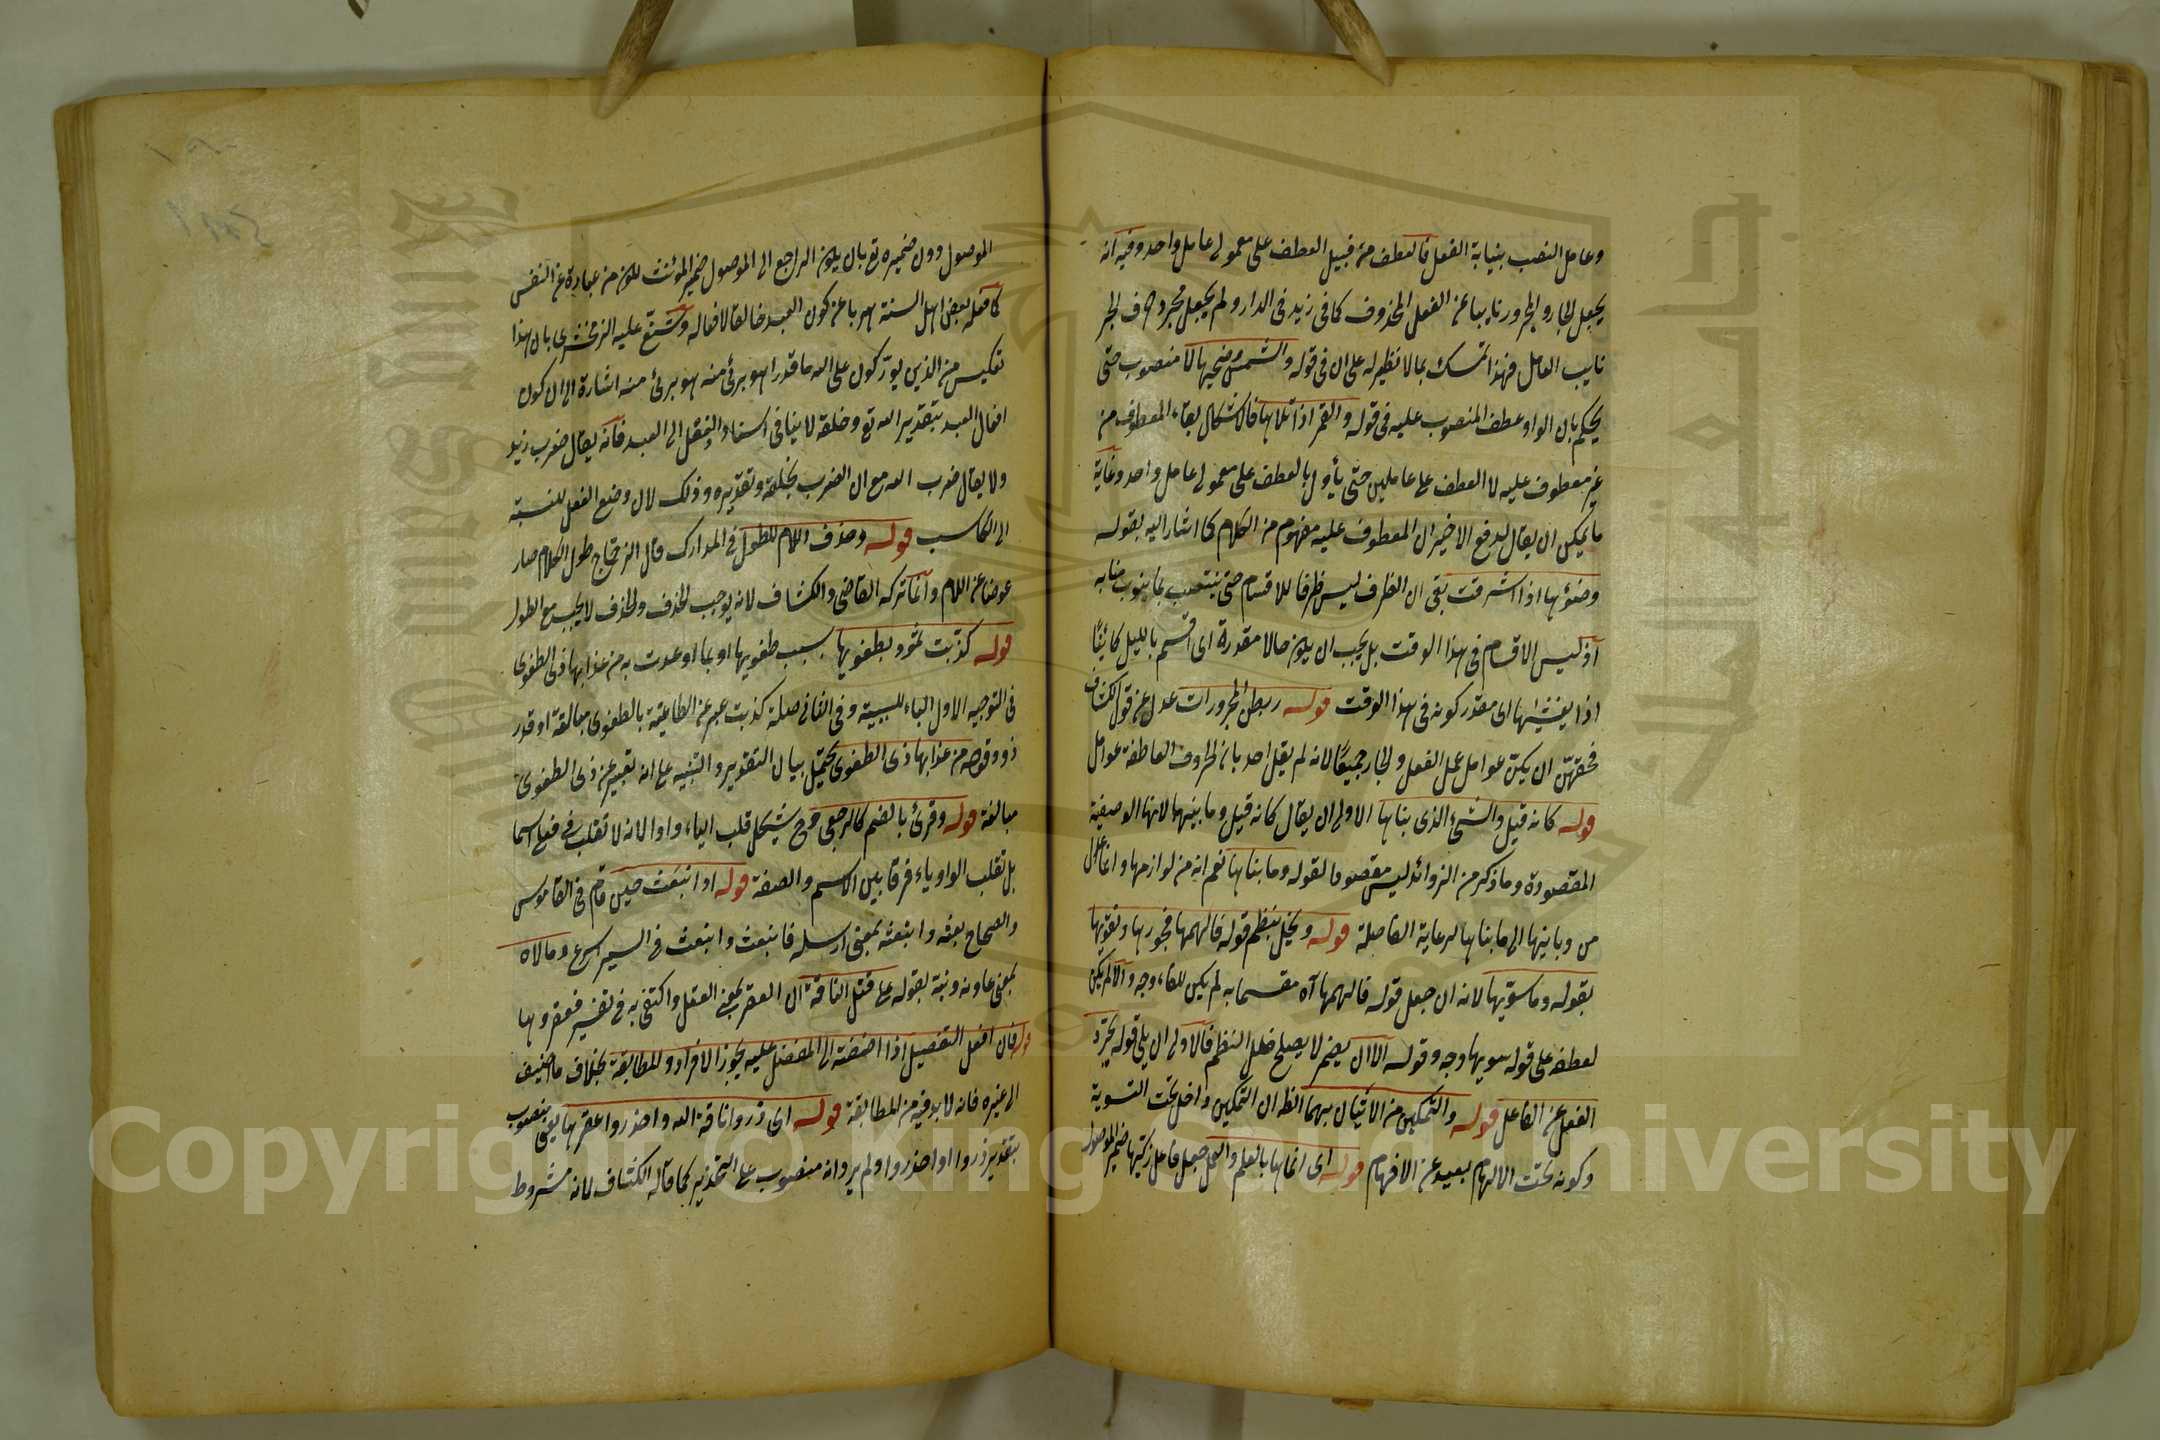 وعامل النصب بنيابة الفعل فالعطف من قبيل العطف على معمولى عامل واحد وفيه انه
يجعل الجار والمجرور نايبا عن الفعل المحذوف كما فى زيد فى الدار ولم يجعل مجرد حرف الجر
نايب العامل فهذا تمسك بما لا نظير له على ان فى قوله والشمس وضحيها لا منصوب حتى
يحكم بان الواو عطف المنصوب عليه فى قوله والقمر اذا تلاها فالاشكال بقاء المعطوف من
غير معطوف عليه لا العطف على عاملين حتى يأول بالعطف على معمولى عامل واحد وغاية
ما يمكن ان يقال لدفع الاخير ان المعطوف عليه مفهوم من الكلام كما اشار اليه بقوله
وضوئها اذا اشرقت بقى ان الظرف ليس ظرفا للاقسام حتى ينتصب بما ينوب منابه
اذ ليس الاقسام فى هذا الوقت بل يجب ان يكون حالا مقدرة اى اقسم بالليل كائنًا
اذا يغشيها اى مقدر كونه فى هذا الوقت قوله ربطن المجرورات عدل عن قول الكشاف
فحقهن ان يكن عوامل عمل الفعل والجار جميعًا لانه لم يقل احد بان الحروف العاطفة عوامل
قوله كانه قيل والشىء الذى بناها الاولى ان يقال كانه قيل وما بينهما لانها الوصفية
المقصودة وما ذكر من الزوائد ليس مقصودا لقوله وما بناها نعم انه من لوازمها وانما عدل
من وبانيها الى ما بناها لرعاية الفاصلة قوله ويخل بنظم قوله فالهمها فجورها وتقويها
بقوله وما سويها لانه ان جعل قوله فالهمها آه مقسما به لم يكن للفاء وجه والا لم يكن
لعطفه على قوله سويها وجه وقوله الا ان يضمر لا يصلح خلل النظم فالاولى ان يلى قوله يجرد
الفعل عن الفاعل قوله والتمكين من الاتيان بهما الظ ان التمكين داخل تحت التسوية
وكونه تحت الالهام بعيد عن الافهام قوله اى انماها بالعلم والعمل جعل فاعل زكيها ضمير الموصول
الموصول دون ضميره تع بان يكون الراجع الى الموصول ضمير المؤنث لكون من عبارة عن النفس
كما فعله بعض اهل السنة هربا عن كون العبد خالقا لافعاله وشنع عليه الزمخشرى بان هذا
تعكيس من الذين يوركون على الله ما قدرا هو برئ منه هو برئ منه اشارة الى ان كون
افعال العبد بتقدير الله تع وخلقه لا ينافى اسناد الفعل الى العبد فانه يقال ضرب زيد
ولا يقال ضرب الله مع ان الضرب بخلقه وتقديره وذلك لان وضع الفعل للنسبة
الى الكاسب قوله وحذف اللام للطول فى المدارك قال الزجاج طول الكلام صار
عوضا عن اللام وانما تركه القاضى والكشاف لانه يوجب الحذف والحذف لا يجب مع الطول
قوله كذبت ثمود بطغويها بسبب طغويها او بما اوعدت به من عذابها ذى الطغوى
فى التوجيه الاول الباء للسببية وفى الثانى صلة كذبت عبر عن الطاغية بالطغوى مبالغة او قدر
ذو وقوله من عذابها ذى الطغوى يحتمل بيان التقدير والتنبيه على انه تعبير عن ذى الطغوى
مبالغة قوله وقرئ بالضم كالرجعى وح يشكل قلب الياء واوا لانه لا تقلب فى فعلى اسما
بل تقلب الواو ياء فرقا بين الاسم والصفة قوله اذا انبعث حين قام فى القاموس
والصحاح بعثه وابتعثه بمعنى ارسله فانبعث وانبعث فى السير اسرع ومالاه
بمعنى عاونه ونبه بقوله على قتل الناقة ان العقر بمعنى العقل واكتفى به فى تفسير فعقروها
قوله فان افعل التفضيل اذا اضفته الى المفضل عليه يجوز الافراد والمطابقة بخلاف ما اضيف
الى غيره فانه لا بد فيه من المطابقة قوله اى ذروا ناقة الله واحذروا عقرها يعنى منصوب
بتقدير ذروا او احذروا ولم يرد انه منصوب على التحذير كما قاله الكشاف لانه مشروط
Copyright © King Saud University